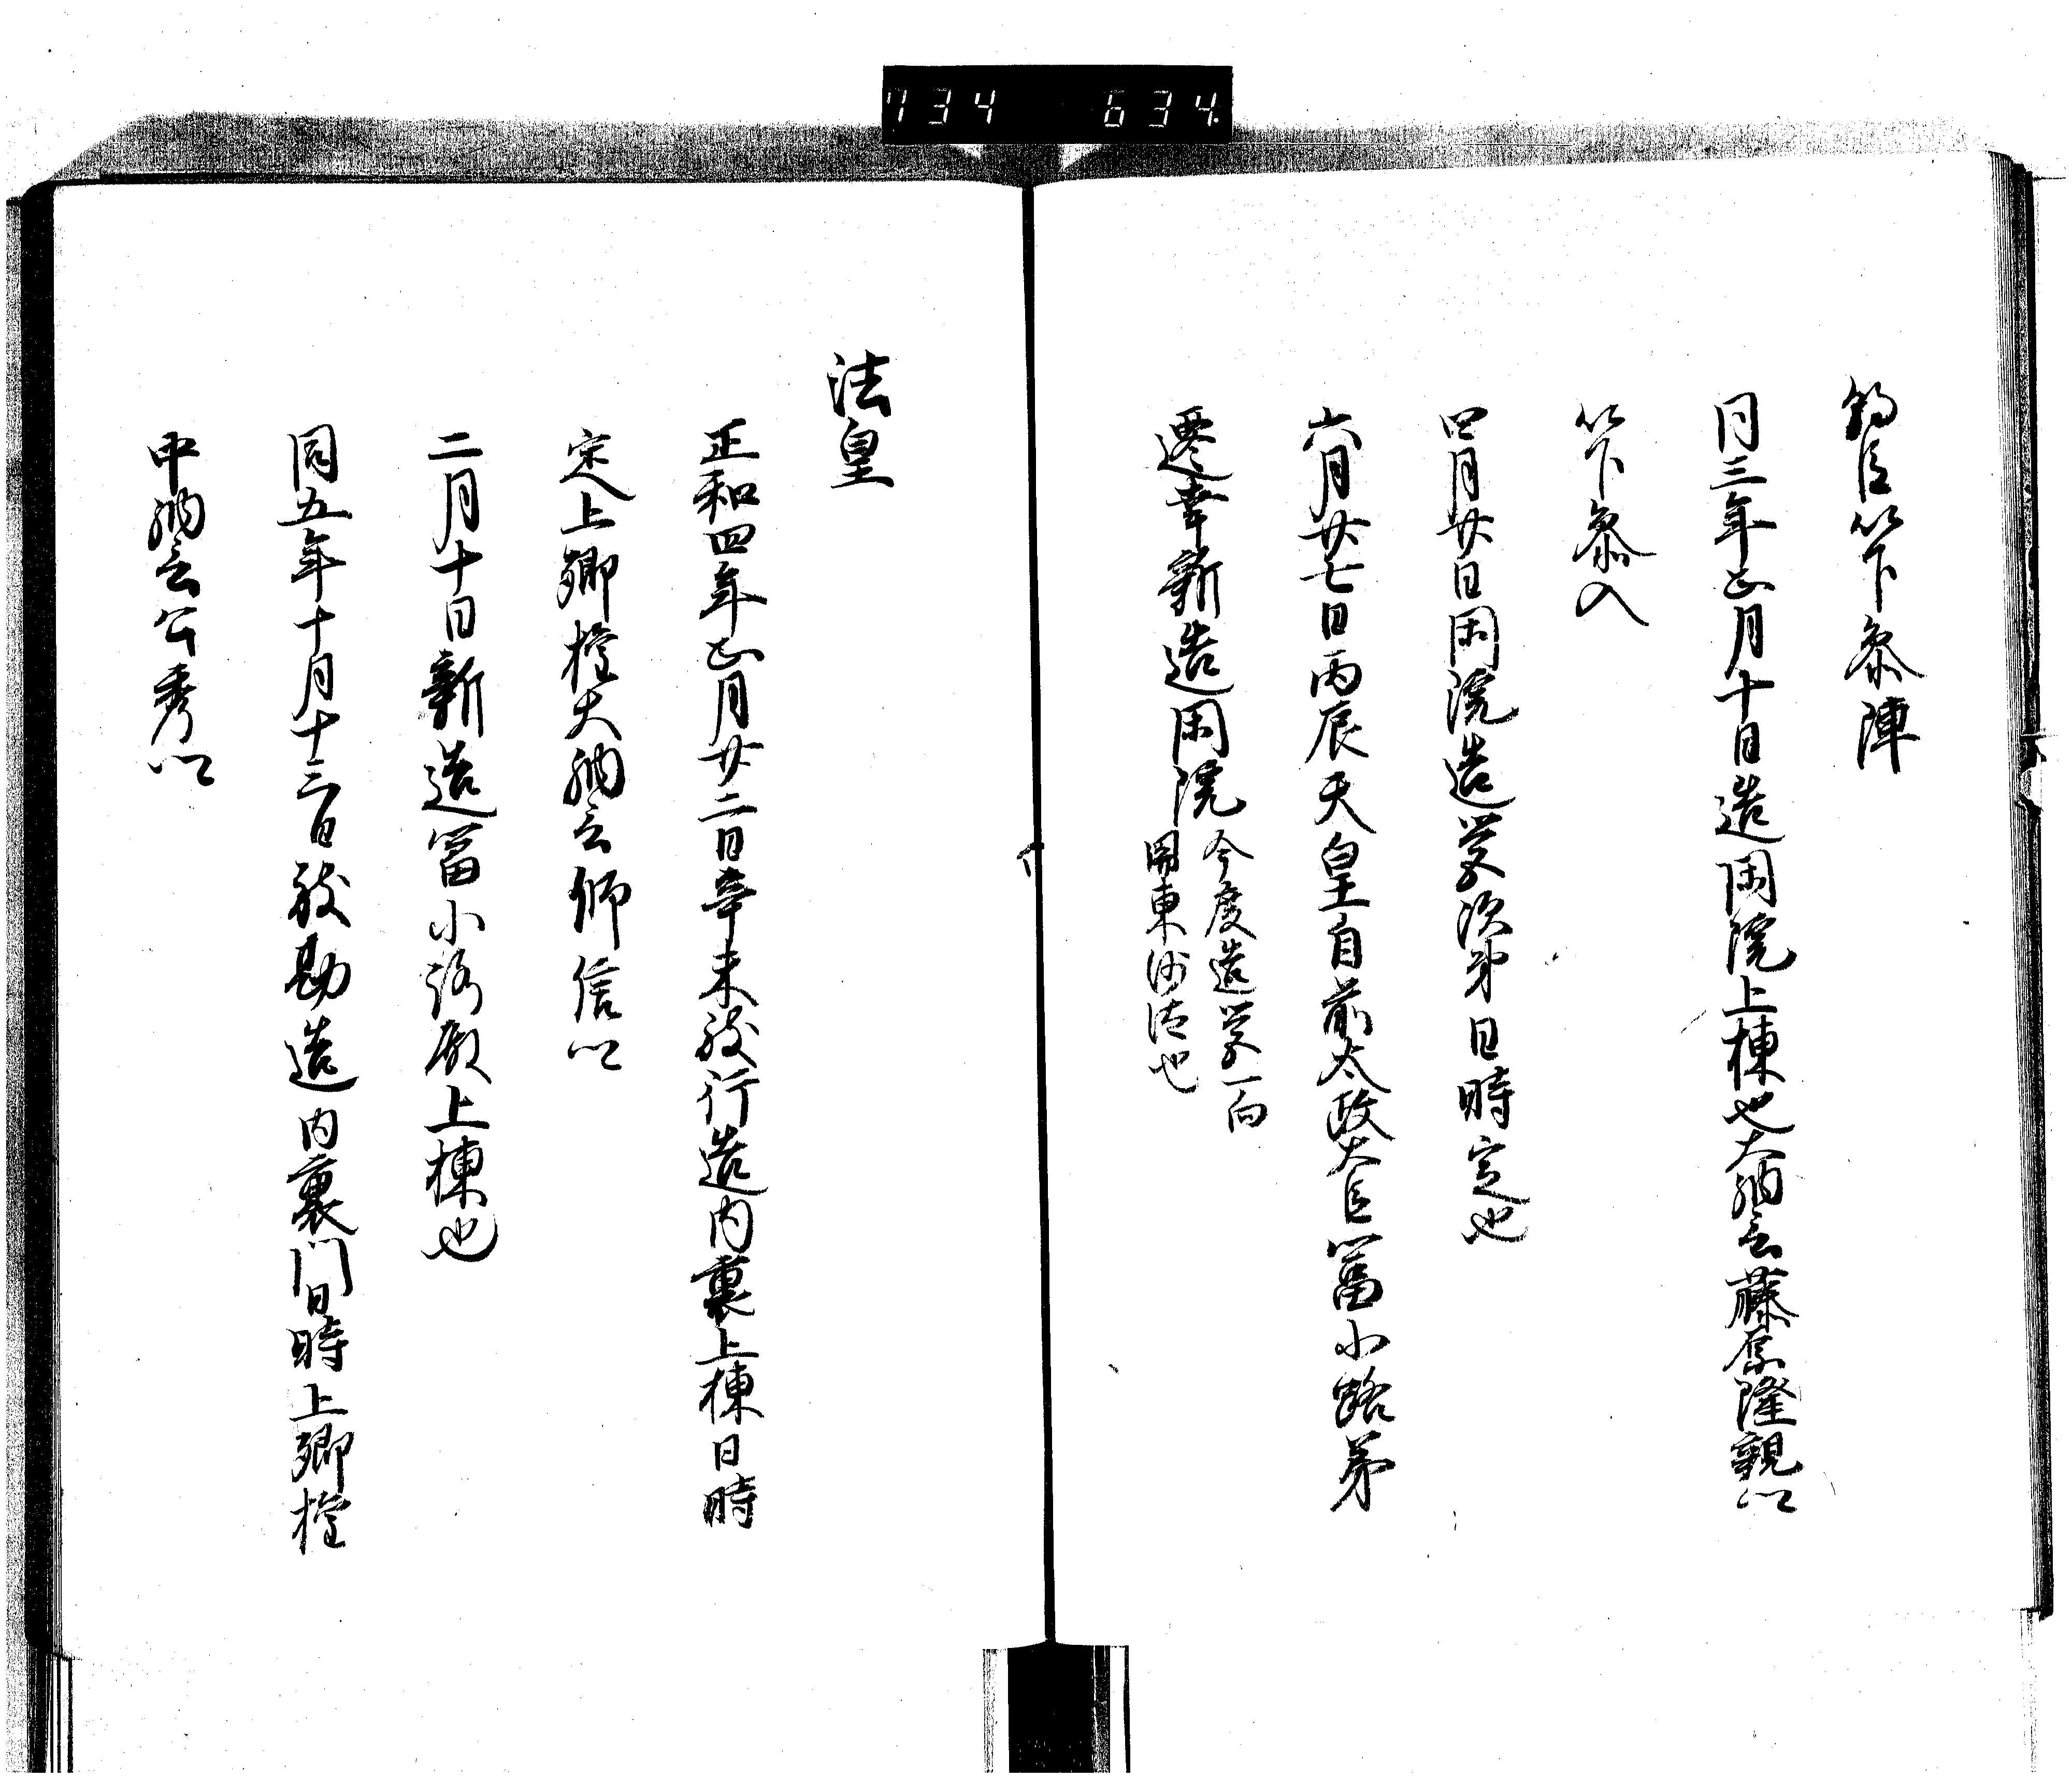 734 634
鈞臣以下参陣
同三年正月十日造閑院上棟也大納言藤原隆親以
以下参入
四月廿日閑院造営次第日時定也
六月廿七日丙辰天皇自前太政大臣冨小路第
遷幸新造閑院今度造営一向
関東沙汰也
法皇
正和四年正月廿二日辛未被行造内裏上棟日時
定上卿権大納言師信以
二月十日新造冨小路殿上棟也
同五年十月十三日被勘造内裏門日時上卿権
中納言公秀以